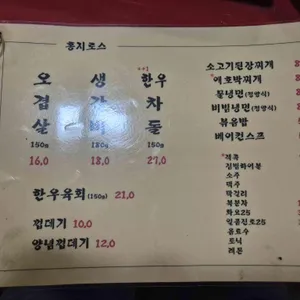 홍치로스
오겹살 150g 16.0
생갈비 180g 18.0
한우차돌 150g 27.0
한우육회 (150g) 21.0
껍데기 10.0
양념껍데기 12.0
소고기된장찌개
애호박찌개
물냉면 (함흥식)
비빔냉면 (함흥식)
볶음밥
베이컨스프
소주
맥주
막걸리
복분자
화요25
일품진로25
음료수
토닉
레몬